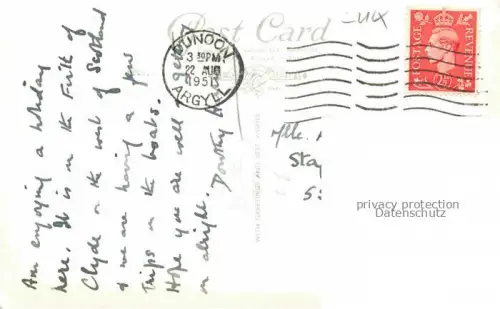 Am enjoying a holiday
here. It is on the Firth of
Clyde on the west of Scotland
& we are having a few
Trips on the boats.
Hope you are well &
on alright.
Dorothy
Post Card
DUNOON
3 30PM
22 AUG
1951
ARGYLL
POSTAGE
REVENUE
Mlle.
Stay
S:
privacy protection
Datenschutz